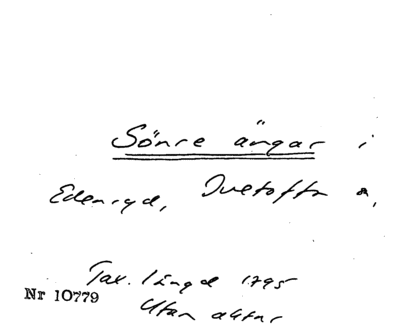 Sönre ängar i
Edenryd, Ivetofta s,
Tax. längd 1795
Nr 10779
Utan aktnr